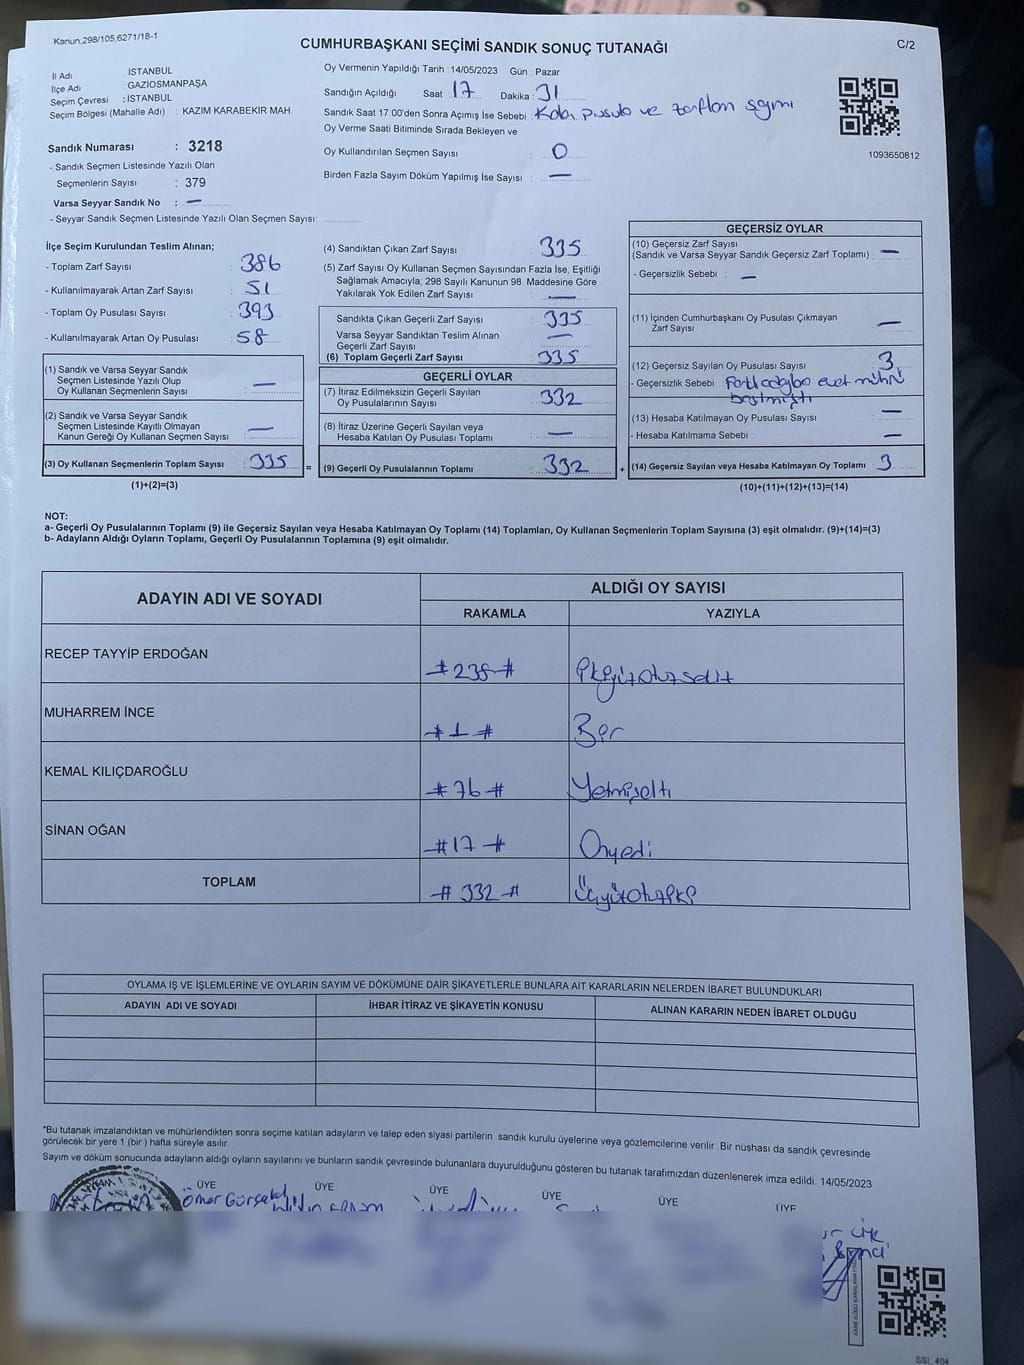 Kanun,298/105,6271/18-1
CUMHURBAŞKANI SEÇİMİ SANDIK SONUÇ TUTANAĞI
C/2
İl Adı : İSTANBUL
İlçe Adı : GAZİOSMANPAŞA
Seçim Çevresi : İSTANBUL
Seçim Bölgesi (Mahalle Adı) : KAZIM KARABEKİR MAH.
Oy Vermenin Yapıldığı Tarih : 14/05/2023 Gün : Pazar
Sandığın Açıldığı Saat 17 Dakika : 31
Sandık Saat 17:00'den Sonra Açımış İse Sebebi : Kalan pusula ve zarfların sayımı
Oy Verme Saati Bitiminde Sırada Bekleyen ve
Oy Kullandırılan Seçmen Sayısı : 0
Birden Fazla Sayım Döküm Yapılmış İse Sayısı : —
1093650812
Sandık Numarası : 3218
- Sandık Seçmen Listesinde Yazılı Olan
Seçmenlerin Sayısı : 379
Varsa Seyyar Sandık No : —
- Seyyar Sandık Seçmen Listesinde Yazılı Olan Seçmen Sayısı:
İlçe Seçim Kurulundan Teslim Alınan;
- Toplam Zarf Sayısı : 386
- Kullanılmayarak Artan Zarf Sayısı : 51
- Toplam Oy Pusulası Sayısı : 393
- Kullanılmayarak Artan Oy Pusulası : 58
(1) Sandık ve Varsa Seyyar Sandık
Seçmen Listesinde Yazılı Olup
Oy Kullanan Seçmenlerin Sayısı : —
(2) Sandık ve Varsa Seyyar Sandık
Seçmen Listesinde Kayıtlı Olmayan
Kanun Gereği Oy Kullanan Seçmen Sayısı : —
(3) Oy Kullanan Seçmenlerin Toplam Sayısı : 335 =
(1)+(2)=(3)
(4) Sandıktan Çıkan Zarf Sayısı : 335
(5) Zarf Sayısı Oy Kullanan Seçmen Sayısından Fazla İse, Eşitliği
Sağlamak Amacıyla; 298 Sayılı Kanunun 98. Maddesine Göre
Yakılarak Yok Edilen Zarf Sayısı : —
Sandıkta Çıkan Geçerli Zarf Sayısı : 335
Varsa Seyyar Sandıktan Teslim Alınan
Geçerli Zarf Sayısı : —
(6) Toplam Geçerli Zarf Sayısı : 335
GEÇERLİ OYLAR
(7) İtiraz Edilmeksizin Geçerli Sayılan
Oy Pusulalarının Sayısı : 332
(8) İtiraz Üzerine Geçerli Sayılan veya
Hesaba Katılan Oy Pusulası Toplamı : —
(9) Geçerli Oy Pusulalarının Toplamı : 332 +
GEÇERSİZ OYLAR
(10) Geçersiz Zarf Sayısı
(Sandık ve Varsa Seyyar Sandık Geçersiz Zarf Toplamı) : —
- Geçersizlik Sebebi : —
(11) İçinden Cumhurbaşkanı Oy Pusulası Çıkmayan
Zarf Sayısı : —
(12) Geçersiz Sayılan Oy Pusulası Sayısı : 3
- Geçersizlik Sebebi : evet mührü
basılmıştı
(13) Hesaba Katılmayan Oy Pusulası Sayısı : —
- Hesaba Katılmama Sebebi : —
(14) Geçersiz Sayılan veya Hesaba Katılmayan Oy Toplamı : 3
(10)+(11)+(12)+(13)=(14)
NOT:
a- Geçerli Oy Pusulalarının Toplamı (9) ile Geçersiz Sayılan veya Hesaba Katılmayan Oy Toplamı (14) Toplamları, Oy Kullanan Seçmenlerin Toplam Sayısına (3) eşit olmalıdır. (9)+(14)=(3)
b- Adayların Aldığı Oyların Toplamı, Geçerli Oy Pusulalarının Toplamına (9) eşit olmalıdır.
ADAYIN ADI VE SOYADI
ALDIĞI OY SAYISI
RAKAMLA YAZIYLA
RECEP TAYYİP ERDOĞAN # 238 # İkiyüzotuzsekiz
MUHARREM İNCE # 1 # Bir
KEMAL KILIÇDAROĞLU # 76 # Yetmişaltı
SİNAN OĞAN # 17 # Onyedi
TOPLAM # 332 # Üçyüzotuziki
OYLAMA İŞ VE İŞLEMLERİNE VE OYLARIN SAYIM VE DÖKÜMÜNE DAİR ŞİKAYETLERLE BUNLARA AİT KARARLARIN NELERDEN İBARET BULUNDUKLARI
ADAYIN ADI VE SOYADI İHBAR İTİRAZ VE ŞİKAYETİN KONUSU ALINAN KARARIN NEDEN İBARET OLDUĞU
*Bu tutanak imzalandıktan ve mühürlendikten sonra seçime katılan adayların ve talep eden siyasi partilerin sandık kurulu üyelerine veya gözlemcilerine verilir. Bir nüshası da sandık çevresinde
görülecek bir yere 1 (bir ) hafta süreyle asılır.
Sayım ve döküm sonucunda adayların aldığı oyların sayılarını ve bunların sandık çevresinde bulunanlara duyurulduğunu gösteren bu tutanak tarafımızdan düzenlenerek imza edildi. 14/05/2023
ÜYE ÜYE ÜYE ÜYE ÜYE ÜYE
Ömer
SSI_404